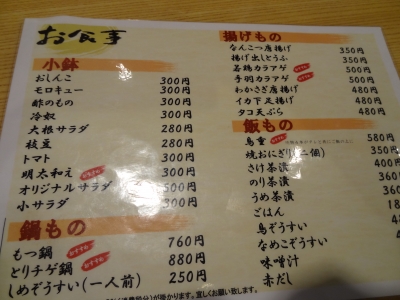 お食事
小鉢
おしんこ 300円
モロキュー 300円
酢のもの 300円
冷奴 300円
大根サラダ 280円
枝豆 280円
トマト 300円
明太和え おすすめ 300円
オリジナルサラダ 500円
小サラダ 300円
鍋もの
もつ鍋 おすすめ 760円
とりチゲ鍋 おすすめ 880円
しめぞうすい(一人前) 250円
が掛かります。宜しくお願い致します。
揚げもの
なんこつ唐揚げ 350円
揚げ出しとうふ 350円
若鶏カラアゲ おすすめ 500円
手羽カラアゲ おすすめ 500円
わかさぎ唐揚げ 480円
イカ下足揚げ 480円
タコ天ぷら 480円
飯もの
鳥重 580円
焼おにぎり(二個) 350円
さけ茶漬 400円
のり茶漬 360
うめ茶漬 360
ごはん
鳥ぞうすい
なめこぞうすい
味噌汁
赤だし